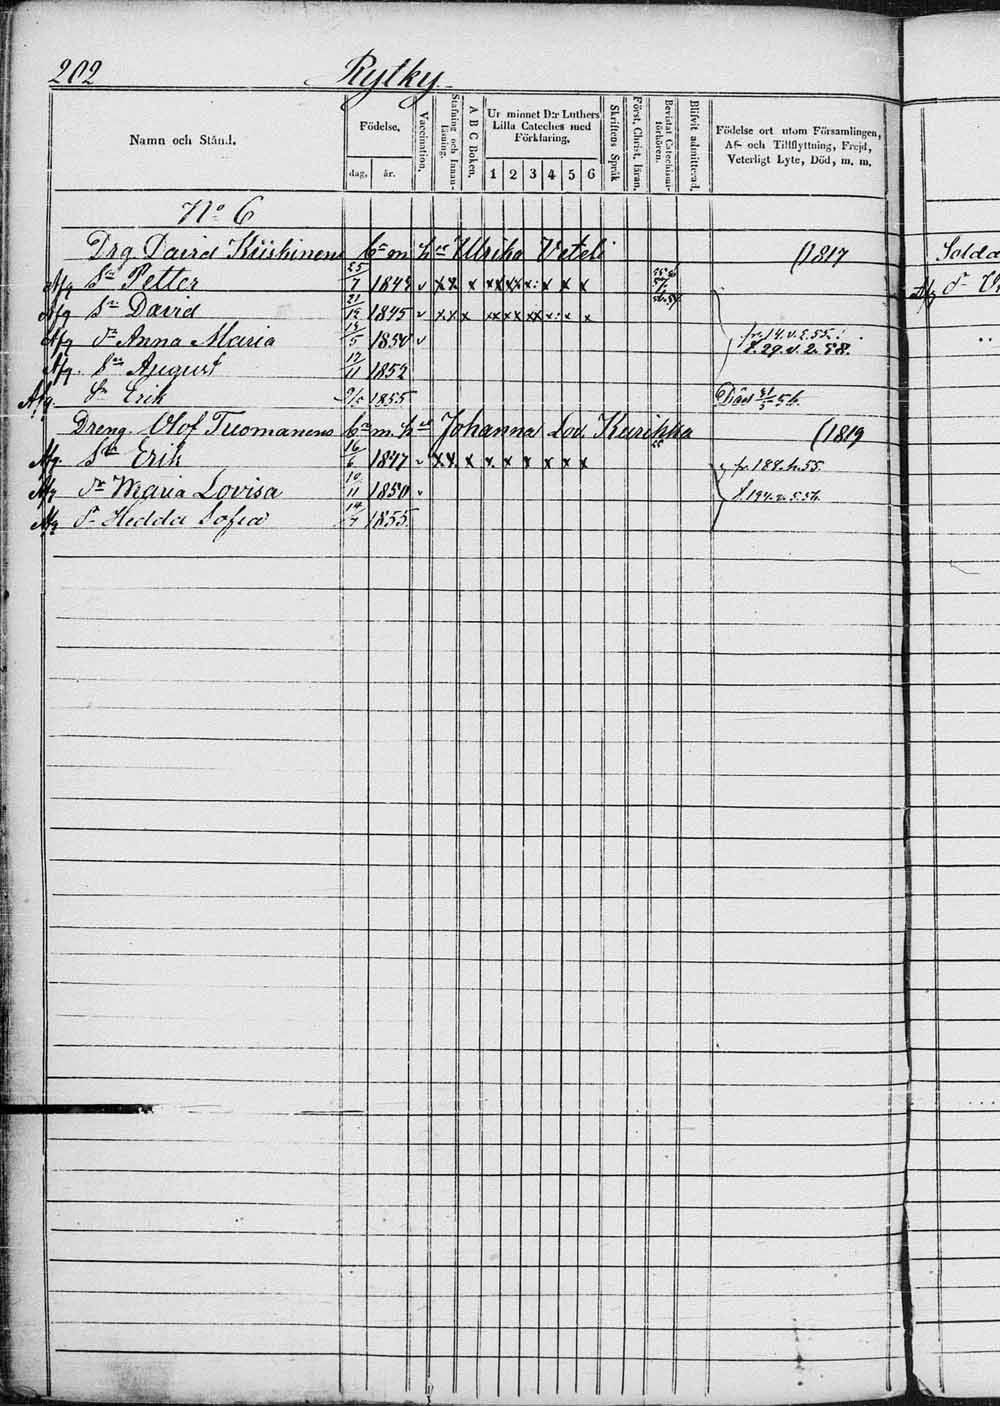 202 Rytky
Namn och Stånd.
Födelse.
dag. år.
Vaccination.
Stafning och Innanläsning.
A B C Boken.
Ur minnet D:r Luthers Lilla Cateches med Förklaring.
1 2 3 4 5 6
Skriftens Språk
Först. Christ. läran.
Bevistat Catechismiförhören.
Blifvit admitterad.
Födelse ort utom Församlingen,
Af- och Tillflyttning, Frejd,
Veterligt Lyte, Död, m. m.
No 6
Drg David Kiiskinens bn m. hu Ulrika Veteli (1817
Afg Sn Petter 25/7 1842 v x x x x x x x x x x x
Afg Sn David 21/12 1845 v x x x x x x x x x x x
Afg Dr Anna Maria 13/5 1850 v fr. 14. v. 2. 55.
f. 29. v. 2. 58.
Afg. Sn August 12/11 1852
Afg. Sn Erik 1855 Död 31/3 56.
Dreng Olof Tuomanens bn m. hu Johanna Lov. Kurikka (1819
Afg. Sn Erik 16/6 1847 v x x x x x x x x x fr. 188. h. 55.
Afg Dr Maria Lovisa 10/11 1850 v f. 194. v. 5. 56.
Afg Dr Hedda Sofia 14/7 1855.
Solda
Afg Dr